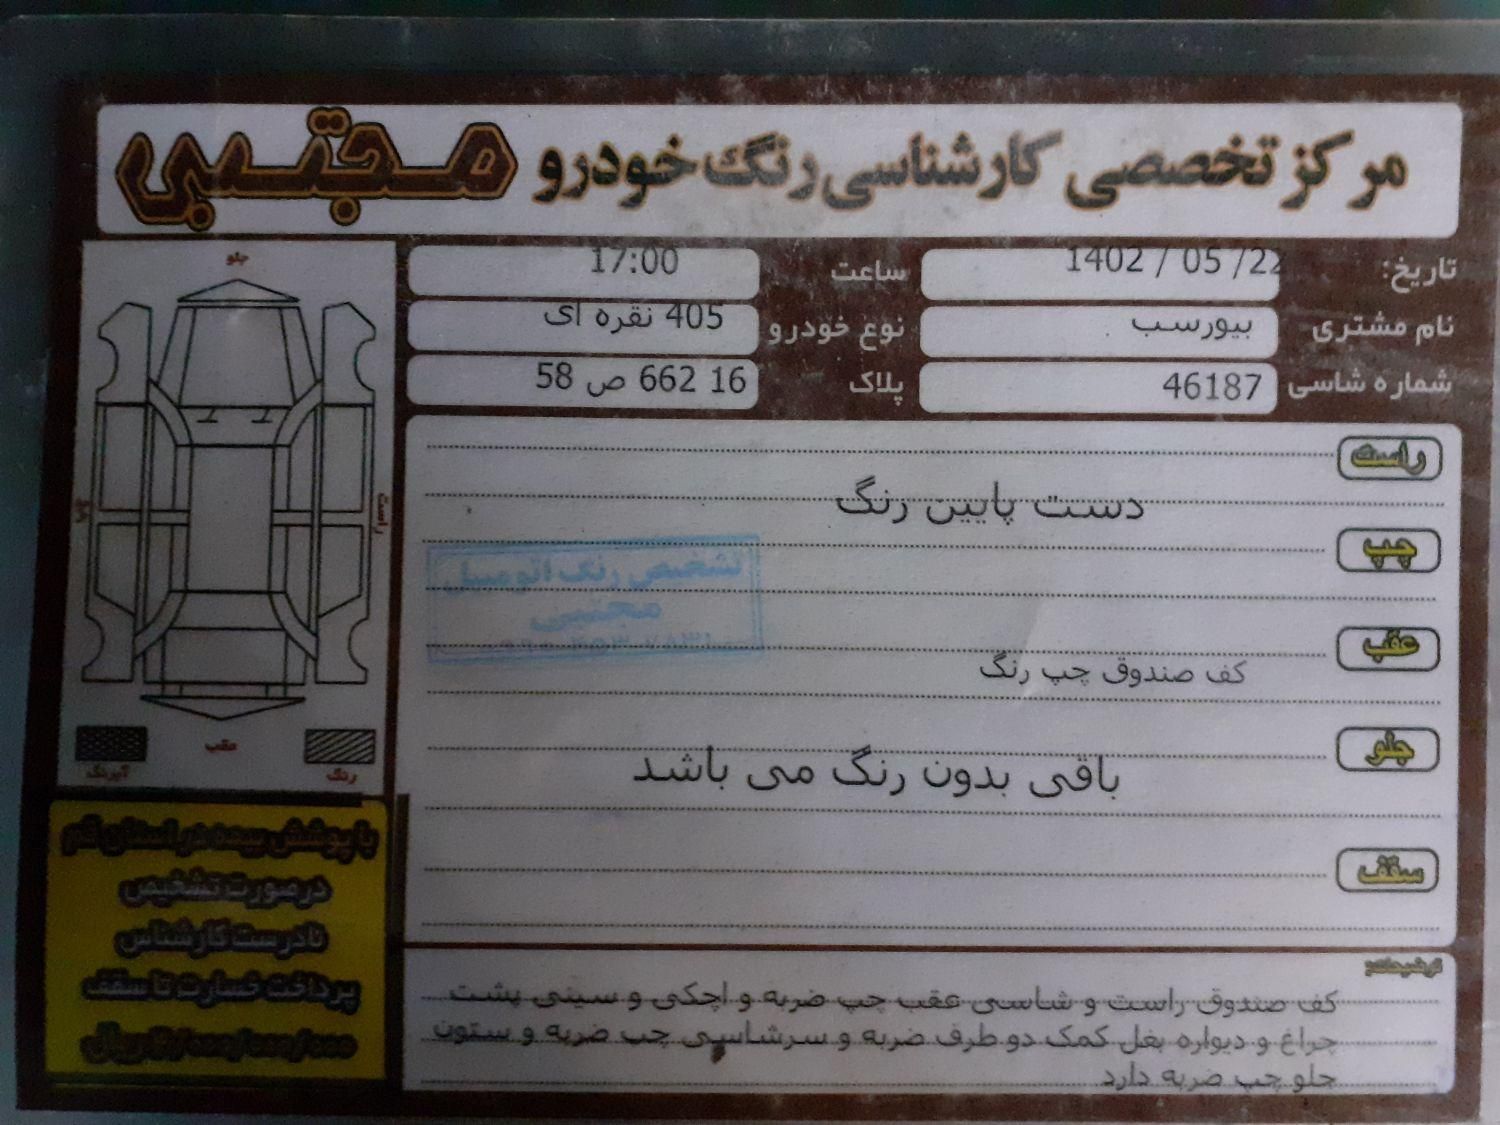 مرکز تخصصی کارشناسی رنگ خودرو مجتبی
تاریخ: 1402 / 05 /22
ساعت 17:00
نام مشتری بیورسب
نوع خودرو 405 نقره ای
شماره شاسی 46187
پلاک 16 662 ص 58
جلو
راست
چپ
عقب
رنگ
آبرنگ
راست
دست پایین رنگ
چپ
تشخیص رنگ اتومبیل
مجتبی
عقب
کف صندوق چپ رنگ
جلو
باقی بدون رنگ می باشد
سقف
توضیحات:
کف صندوق راست و شاسی عقب چپ ضربه و اچکی و سینی پشت
چراغ و دیواره بغل کمک دو طرف ضربه و سرشاسی چپ ضربه و ستون
جلو چپ ضربه دارد
با پوشش بیمه در استان قم
در صورت تشخیص
نادرست کارشناس
پرداخت خسارت تا سقف
ریال